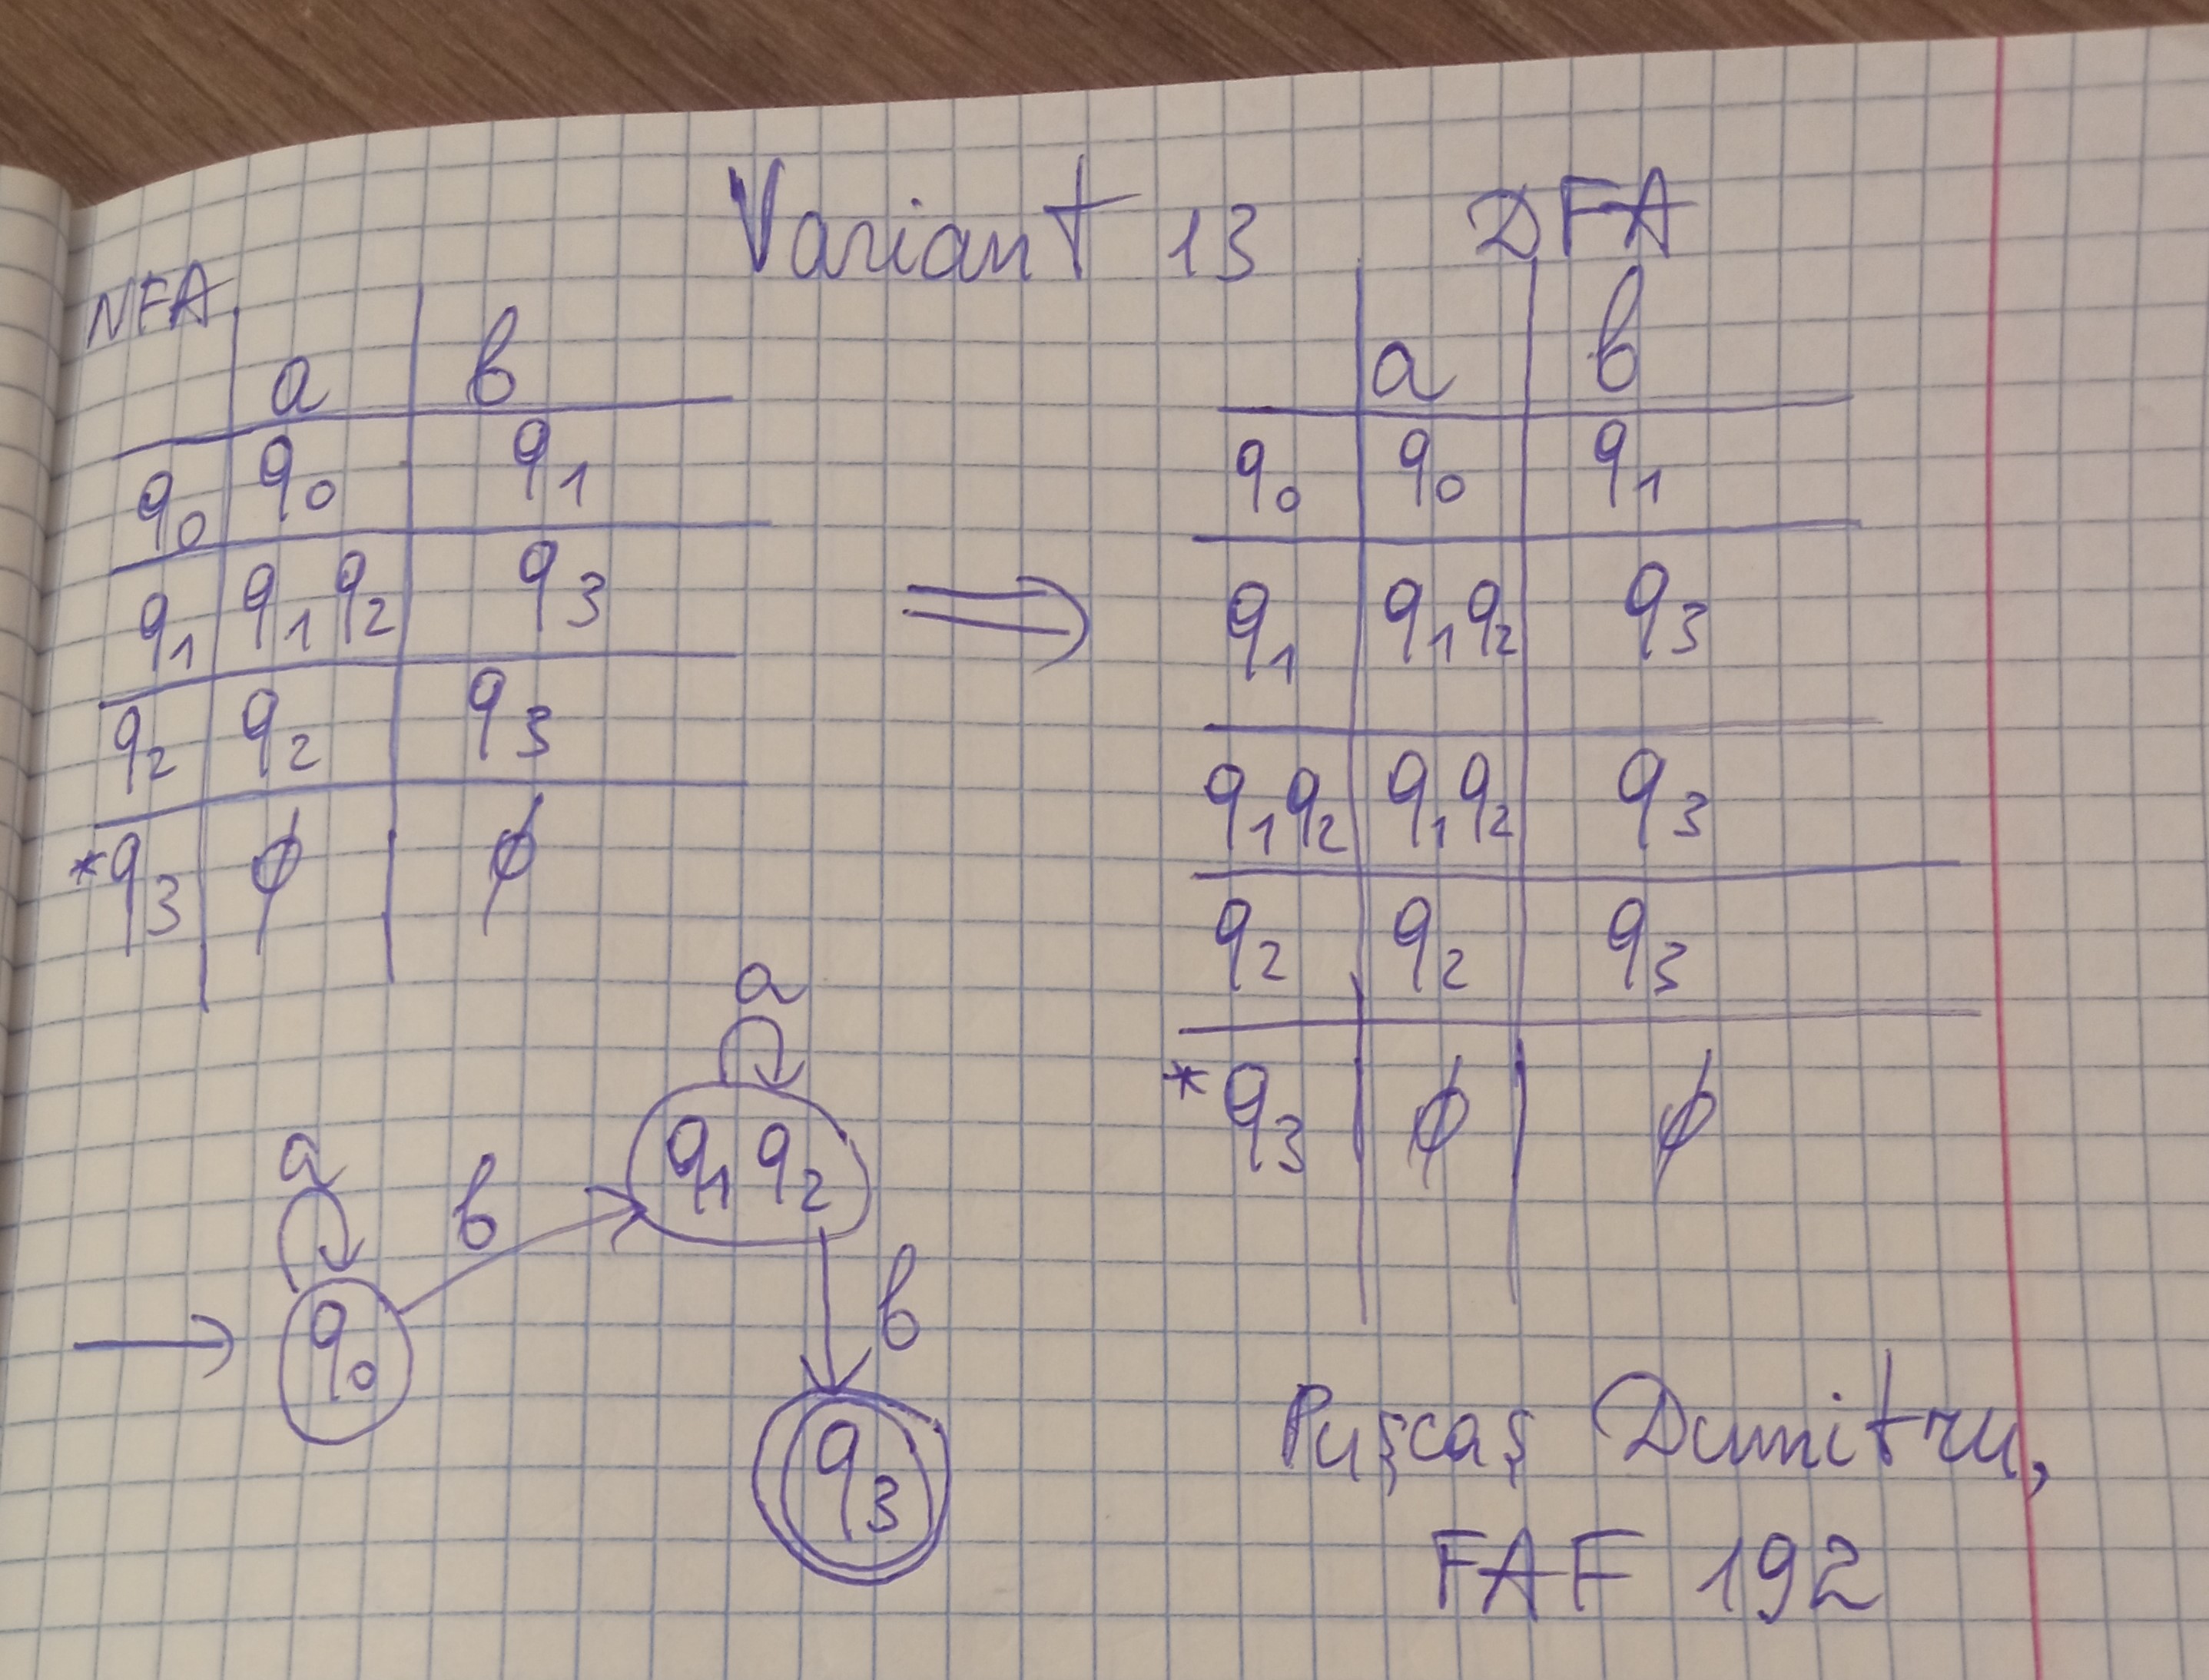 Variant 13
NFA
a b
q0 q0 q1
q1 q1 q2 q3
q2 q2 q3
*q3 ϕ ϕ
⇒
DFA
a b
q0 q0 q1
q1 q1q2 q3
q1q2 q1q2 q3
q2 q2 q3
*q3 ϕ ϕ
a
q1 q2
a
b
q0
b
q3
Pușcaș Dumitru,
FAF 192